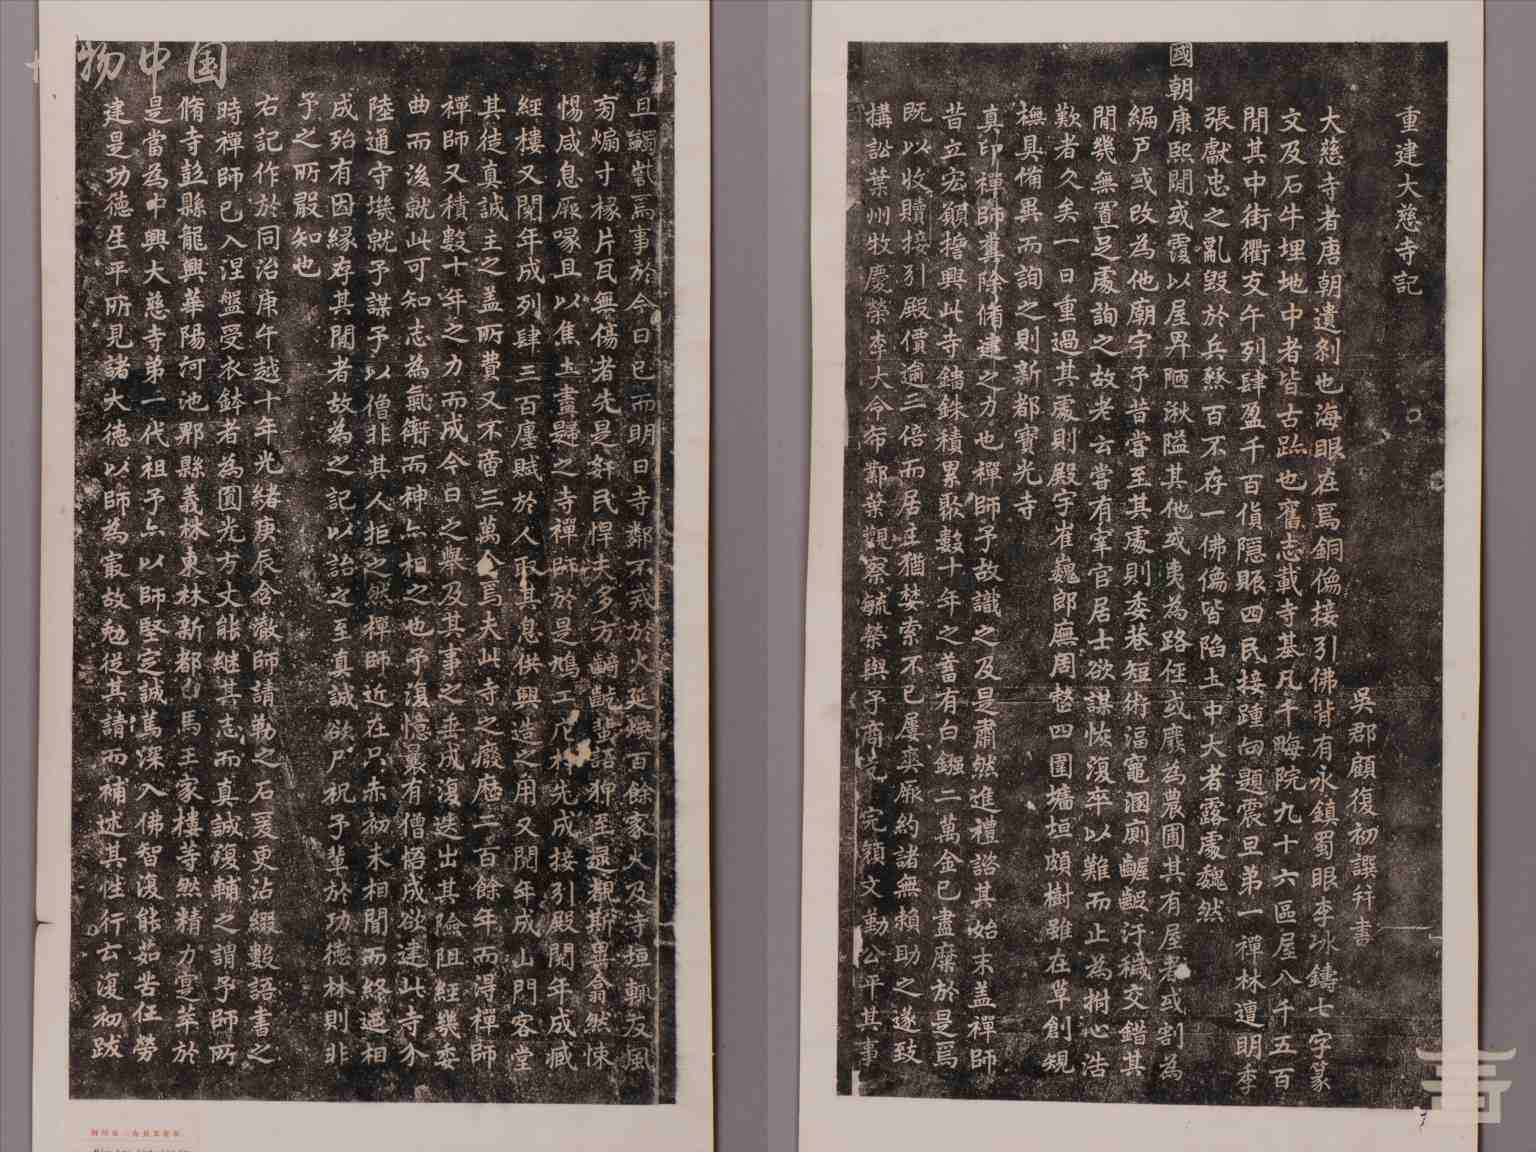 重建大慈寺記
吳郡顧復初譔并書
大慈寺者唐朝遺刹也海眼在焉銅儋接引佛背有永鎮蜀眼李冰鑄七字篆
文及石牛埋地中者皆古蹟也舊志載寺基凡千畮院九十六區屋八千五百
閒其中街衢交午列肆盈千百貨隱賑四民接踵向題震旦弟一禪林遭明季
張獻忠之亂毀於兵燹百不存一佛儋皆陷土中大者露處巍然
國朝康熙閒或覆以屋畀陋湫隘其他或夷為路徑或廢為農圃其有屋者或割為
編戶或改為他廟宇予昔嘗至其處則委巷短術湢竈溷廁齷齪汙穢交錯其
閒幾無置足處詢之故老云嘗有宰官居士欲謀恢復卒以難而止為拊心浩
歎者久矣一日重過其處則殿宇崔巍郎廡周整四圍墻垣頗樹雖在草創規
橅具備異而詢之則新都寶光寺
真印禪師糞除脩建之力也禪師予故識之及是肅然進禮諮其始末盖禪師
昔立宏願擔興此寺鏹銖積累聚數十年之蓄有白鏹二萬金已盡糜於是焉
既以收贖接引殿價逾三倍而居主猶婪索不已屢爽厥約諸無賴助之遂致
搆訟葉州牧慶榮李大令布鄴葉觀察毓榮與予商 完顏文勤公平其事
且蠲 焉事於今日已而明日寺鄰不戒於火延燒百餘家火及寺垣輒反風
旁煽寸椽片瓦無傷者先是奸民悍夫多方齮齕蜚語狎至還觀斯異翕然悚
惕咸息厥喙且以焦土盡歸之寺禪師於是鳩工庀材先成接引殿閱年成藏
經樓又閱年成列肆三百廛賦於人取其息供興造之用又閱年成山門客堂
其徒真誠主之盖所費又不啻三萬金焉夫此寺之廢歷二百餘年而得禪師
禪師又積數十年之力而成今日之舉及其事之垂成復迭出其險阻經幾委
曲而後就此可知志為氣衛而神亦相之也予復憶曩有僧悟成欲建此寺介
陸通守堠就予謀予以僧非其人拒之然禪師近在只赤初未相聞而終遇相
成殆有因緣存其閒者故為之記以詒之至真誠欲尸祝予輩於功德林則非
予之所敢知也
右記作於同治庚午越十年光緒庚辰含澈師請勒之石爰更沾綴數語書之
時禪師已入涅盤受衣鉢者為圓光方丈能繼其志而真誠復輔之謂予師所
脩寺彭縣龍興華陽河池郫縣義林東林新都 馬王家樓等然精力寔萃於
是當為中興大慈寺弟一代祖予亦以師堅定誠篤深入佛智復能茹苦任勞
建是功德生平所見諸大德以師為冣故勉從其請而補述其性行云復初跋
物中国